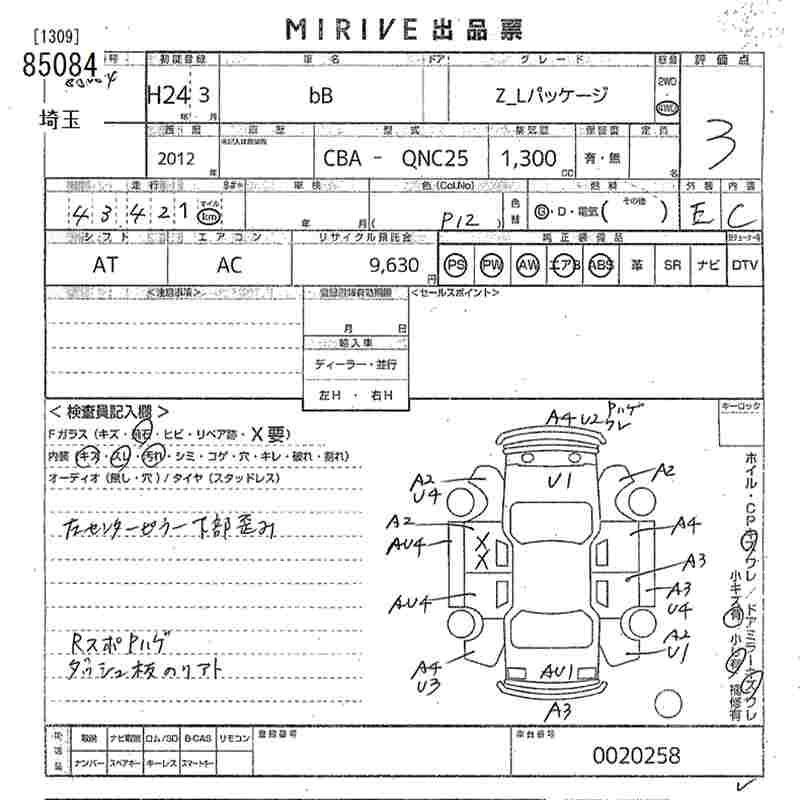 MIRIVE 出品票
[1309]
85084
埼玉
初度登録 車名 ドア グレード 評価点
H24 3 bB Z_Lパッケージ 2WD 4WD
年 月
3
車歴 型式 排気量 定員
2012 CBA - QNC25 1,300 有・無
年 CC 名
走行 車検 色(Col.No) 燃料 外装 内装
43421 マイル km 年 月( P12 ) 色替 G・D・電気( その他 ) E C
シフト エアコン リサイクル預託金 純正装備品
AT AC 9,630円 PS PW AW エアB ABS 革 SR ナビ DTV
<注意事項> <セールスポイント>
月 日
輸入車
ディーラー・並行
左H ・ 右H
<検査員記入欄> キーロック
Fガラス(キズ・飛石・ヒビ・リペア跡・X要)
内装(キズ・スレ・汚れ・シミ・コゲ・穴・キレ・破れ・割れ)
オーディオ(無し・穴)/タイヤ(スタッドレス)
左センターピラー下部歪み
RスポPハゲ
ダッシュ板のリアト
A4 U2 Pハゲ ワレ
U1
A2 U4
A2
A2
AU4
X X
A4
A3
AU4
A3 U4
A2 U1
A4 U3
AU1
A3
ホイル・CPキズワレ/ドアミラーキズワレ
小キズ有 小凹有 補修有
後送品 取説 ナビ取説 ロム/SD B-CAS リモコン 登録番号 車台番号
ナンバー スペアキー キーレス スマートキー
0020258